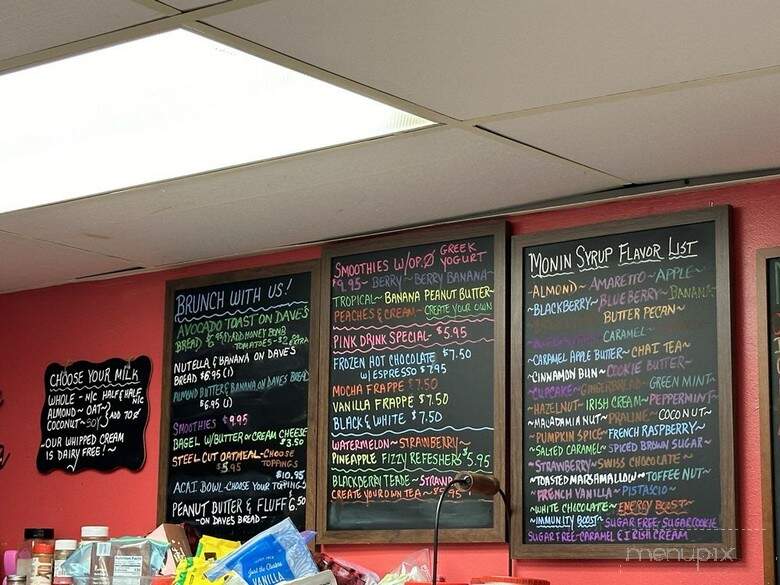 CHOOSE YOUR MILK
WHOLE - N/C HALF & HALF N/C
ALMOND~ OAT~
COCONUT~SOY ADD 70¢
~OUR WHIPPED CREAM
IS DAIRY FREE! ~
BRUNCH WITH US!
AVOCADO TOAST ON DAVE'S
BREAD ADD HONEY BOMB
TOMATOES EXTRA
NUTELLA & BANANA ON DAVE'S
BREAD $6.95 (1)
ALMOND BUTTER & BANANA ON DAVES BREAD
$6.95 (1)
SMOOTHIES $9.95
BAGEL W/BUTTER OR CREAM CHEESE
$3.50
STEEL-CUT OATMEAL-CHOOSE
$5.95 TOPPINGS
$10.95
ACAI BOWL-CHOOSE YOUR TOPPINGS
PEANUT BUTTER & FLUFF 6.50
~ON DAVES BREAD~
SMOOTHIES W/OP.Ø GREEK YOGURT
$9.95~ BERRY~ BERRY BANANA~
TROPICAL~ BANANA PEANUT BUTTER~
PEACHES & CREAM~ CREATE YOUR OWN
PINK DRINK SPECIAL~ $5.95
FROZEN HOT CHOCOLATE $7.50
W/ESPRESSO $7.95
MOCHA FRAPPE $7.50
VANILLA FRAPPE $7.50
BLACK & WHITE $7.50
WATERMELON~STRAWBERRY~
PINEAPPLE FIZZY REFESHERS $5.95
BLACKBERRY TEADE~
CREATE YOUR OWN TEA~ $5.95
MONIN SYRUP FLAVOR LIST
ALMOND~ AMARETTO~APPLE~
~BLACKBERRY~BLUEBERRY~BANANA
BUTTER PECAN~
CARAMEL~
~CARAMEL APPLE BUTTER~ CHAI TEA~
~CINNAMON BUN~ COOKIE BUTTER~
~CUPCAKE~GINGERBREAD~ GREEN MINT~
~HAZELNUT~ IRISH CREAM~PEPPERMINT~
~MACADAMIA NUT~PRALINE~ COCONUT~
~PUMPKIN SPICE~ FRENCH RASPBERRY~
~SALTED CARAMEL~ SPICED BROWN SUGAR~
~STRAWBERRY~SWISS CHOCOLATE~
~TOASTED MARSHMALLOW~TOFFEE NUT~
~FRENCH VANILLA~ PISTACHIO~
~WHITE CHOCOLATE~ ENERGY BOOST~
~IMMUNITY BOOST~SUGAR FREE-SUGAR COOKIE
SUGAR FREE-CARAMEL & IRISH CREAM
VANILLA
menupix